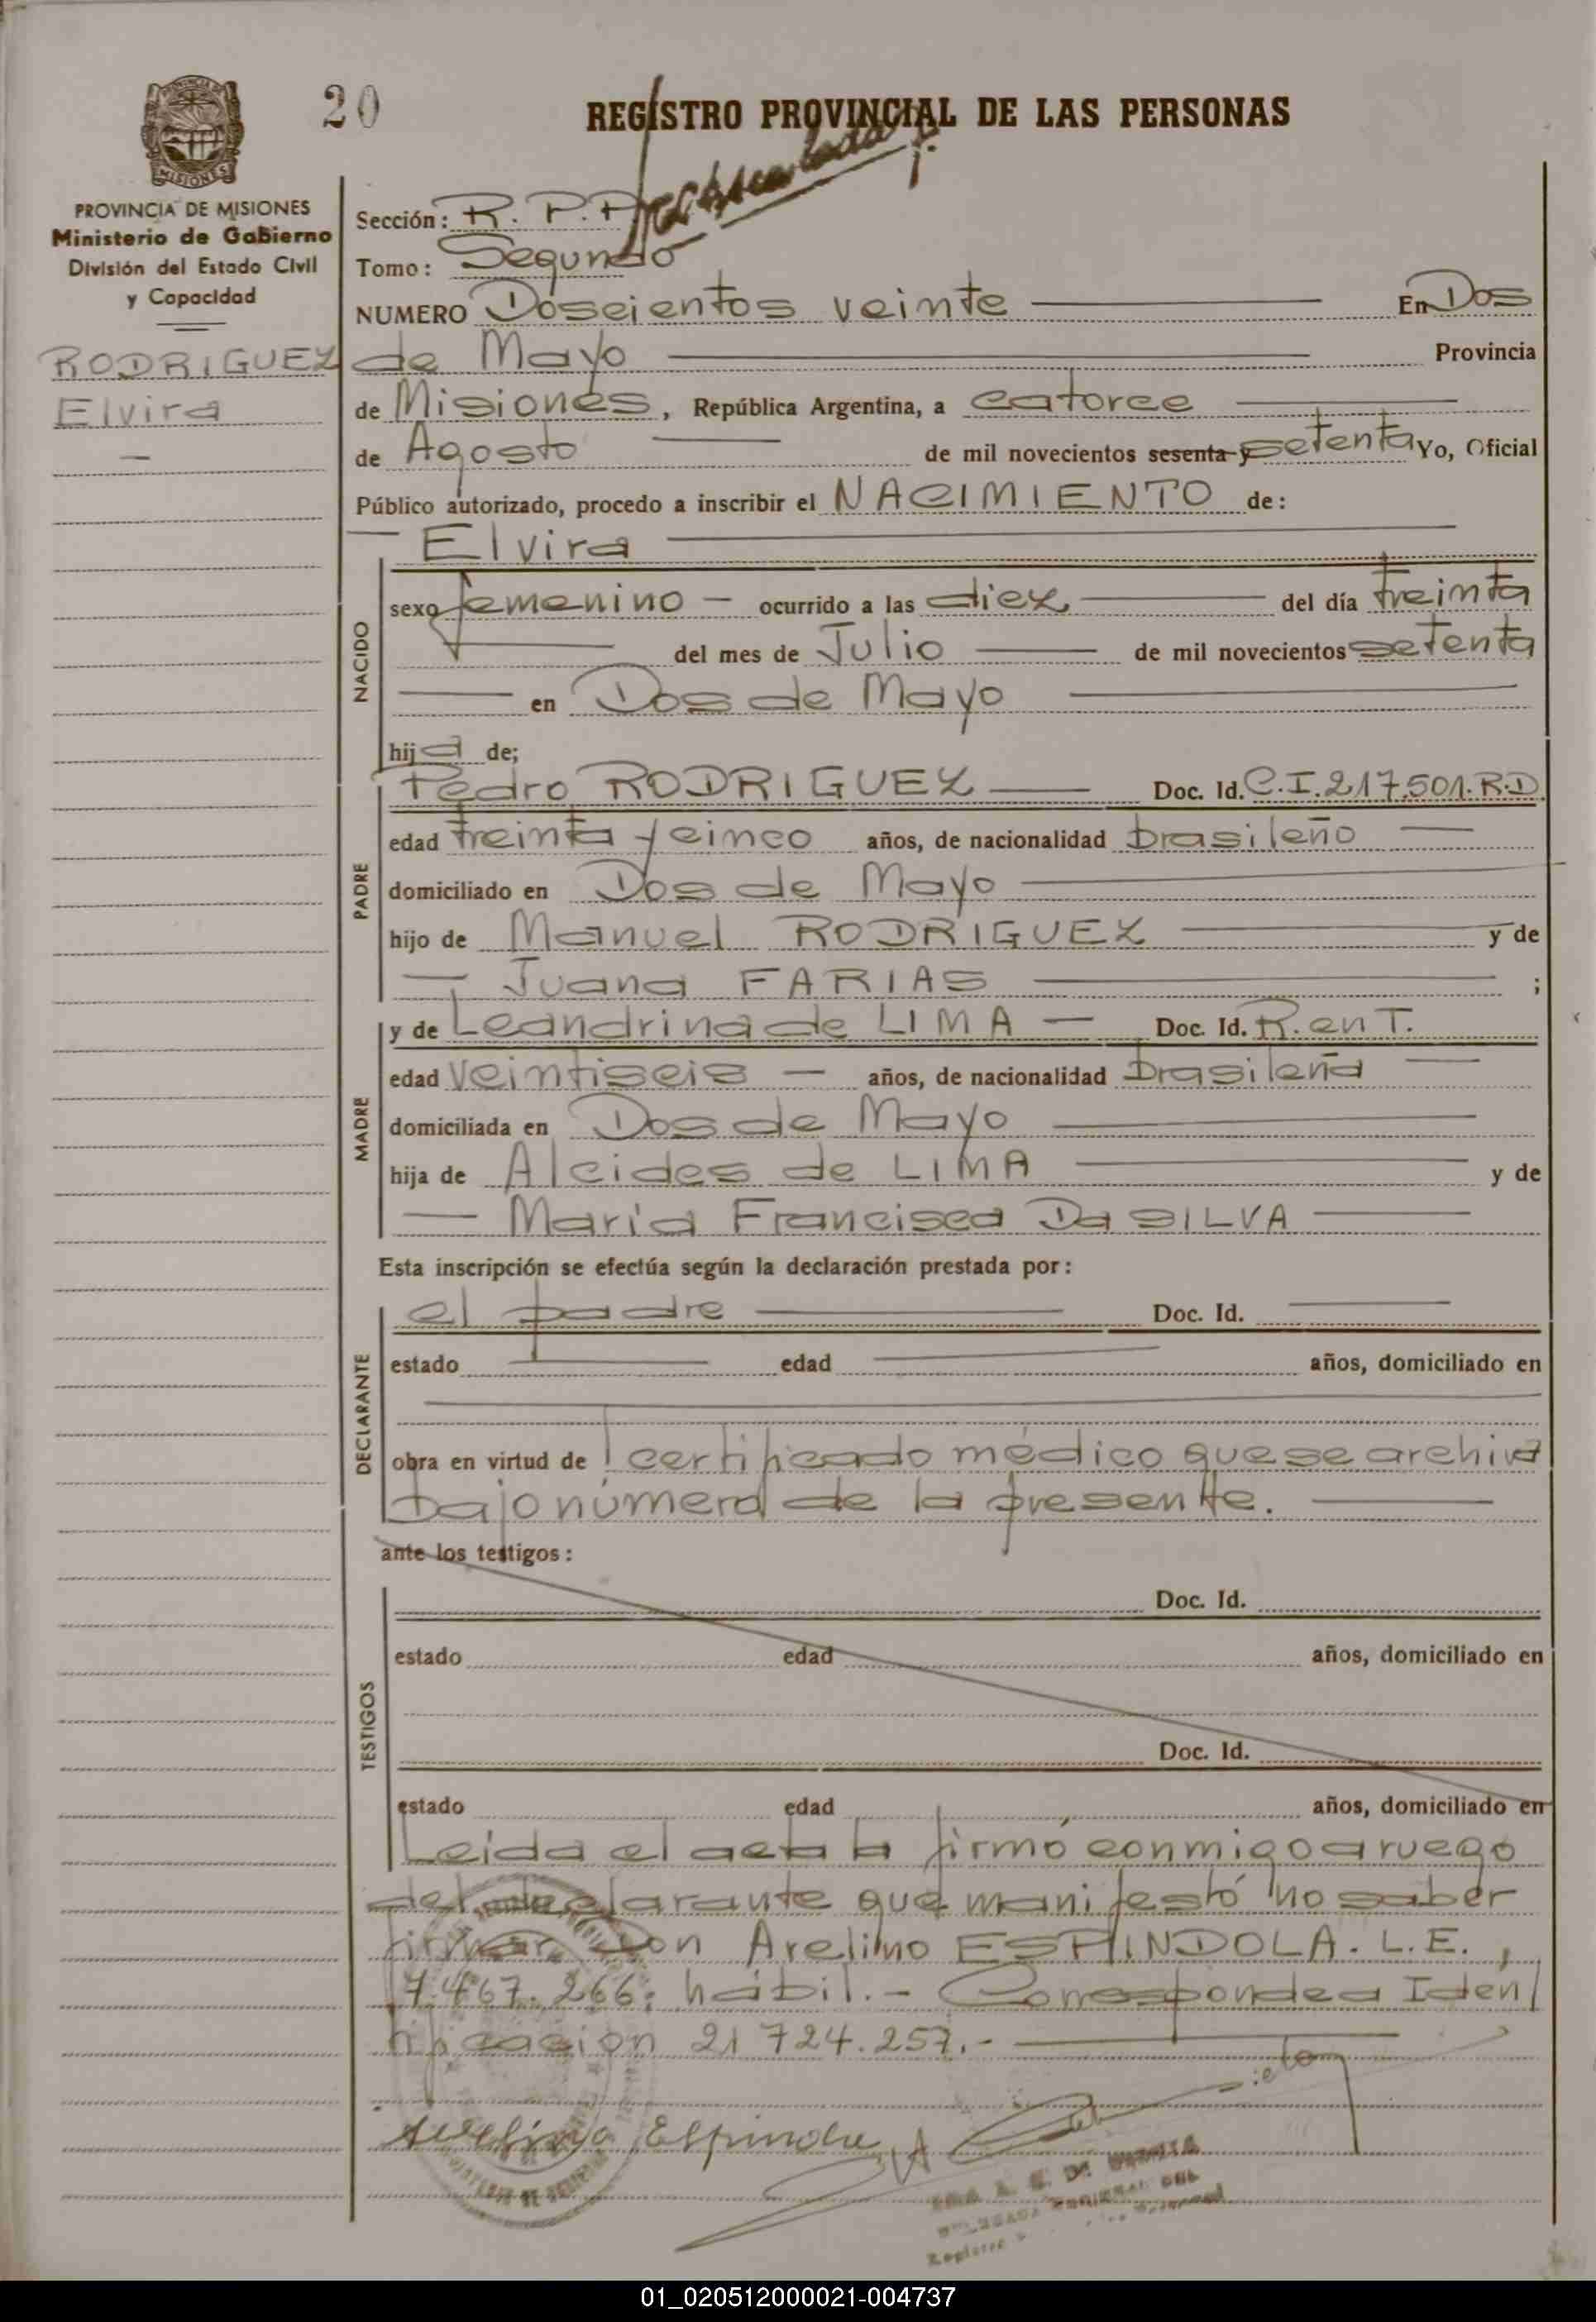 20
REGISTRO PROVINCIAL DE LAS PERSONAS
MISIONES
PROVINCIA DE MISIONES
Ministerio de Gobierno
División del Estado Civil
y Capacidad
RODRIGUEZ
Elvira
Sección: R. P. P.
Tomo: Segundo
NUMERO Doscientos veinte En Dos
de Mayo Provincia
de Misiones, República Argentina, a catorce
de Agosto de mil novecientos sesenta y setenta Yo, Oficial
Público autorizado, procedo a inscribir el NACIMIENTO de:
Elvira
NACIDO
sexo femenino — ocurrido a las diez del día treinta
del mes de Julio de mil novecientos setenta
en Dos de Mayo
hija de;
PADRE
Pedro RODRIGUEZ Doc. Id. C.I. 217.501. R.D.
edad treinta y cinco años, de nacionalidad brasileño
domiciliado en Dos de Mayo
hijo de Manuel RODRIGUEZ y de
Juana FARIAS ;
MADRE
y de Leandrina de LIMA — Doc. Id. R. en T.
edad veintiseis — años, de nacionalidad brasileña
domiciliada en Dos de Mayo
hija de Alcides de LIMA y de
María Francisca Da SILVA
Esta inscripción se efectúa según la declaración prestada por:
DECLARANTE
el padre Doc. Id.
estado edad años, domiciliado en
obra en virtud de certificado médico que se archiva
bajo número de la presente.
ante los testigos:
TESTIGOS
Doc. Id.
estado edad años, domiciliado en
Doc. Id.
estado edad años, domiciliado en
Leída el acta la firmó conmigo a ruego
del declarante que manifestó no saber
firmar Don Avelino ESPINDOLA. L.E.
7.467.266; hábil.- Corresponde a Iden
tificación 21 724.257.-
Avelino Espindola
01_020512000021-004737